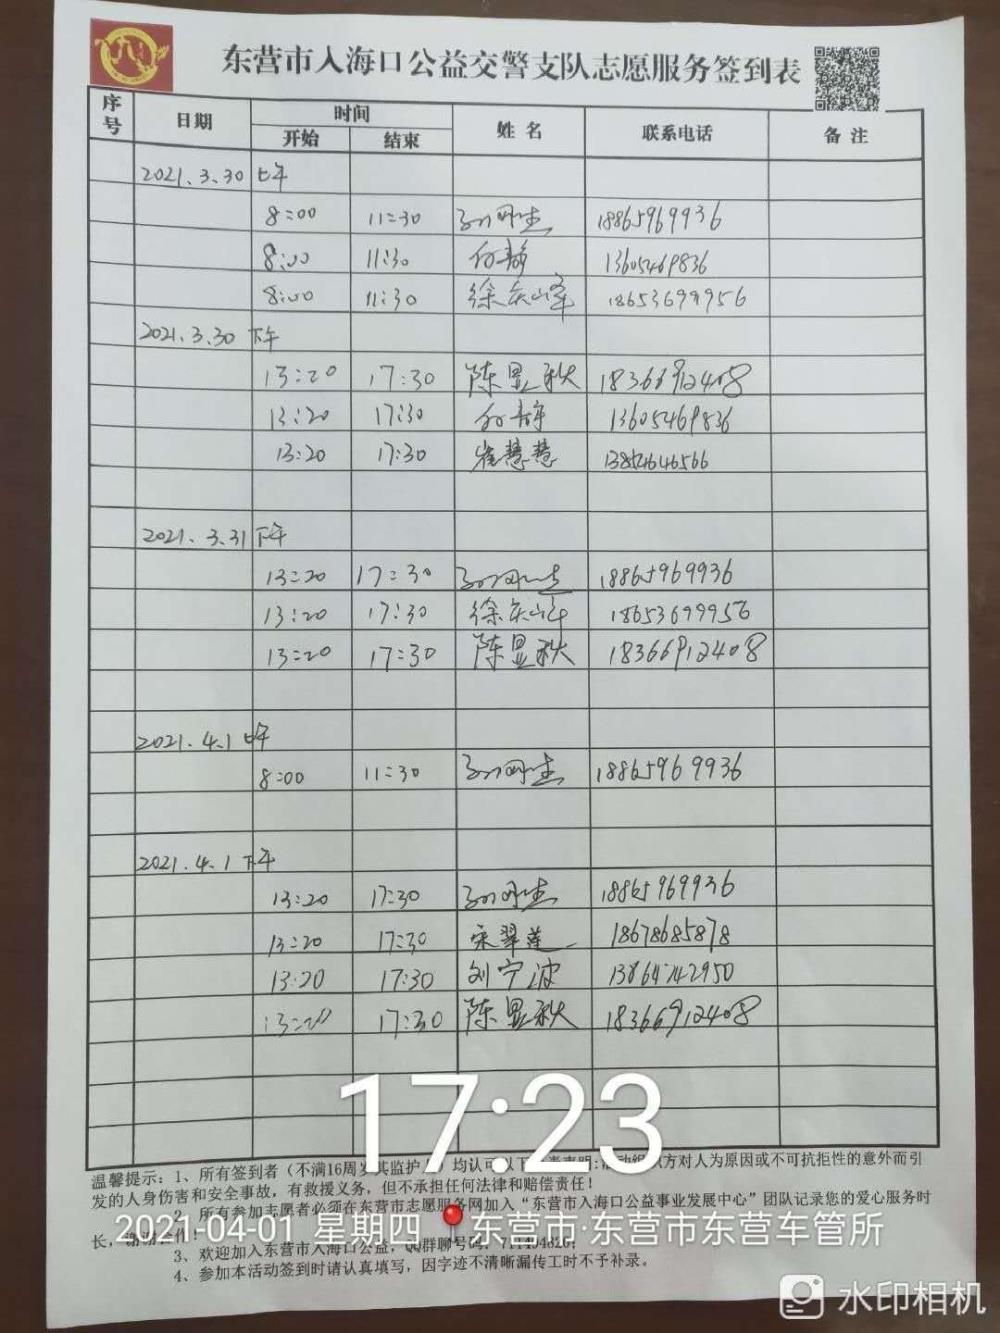 东营市入海口公益交警支队志愿服务签到表
序号 日期 时间 姓名 联系电话 备注
开始 结束
2021.3.30 上午
8:00 11:30 18865969936
8:00 11:30 付静 13605469836
8:00 11:30 徐庆峰 18653699956
2021.3.30 下午
13:20 17:30 陈显秋 18366912408
13:20 17:30 付静 13605469836
13:20 17:30 崔慧慧
2021.3.31 下午
13:20 17:30 18865969936
13:20 17:30 徐庆峰 18653699956
13:20 17:30 陈显秋 18366912408
2021.4.1 上午
8:00 11:30 18865969936
2021.4.1 下午
13:20 17:30 18865969936
13:20 17:30 宋翠莲 18678685878
13:20 17:30 刘宁波 13864742950
13:20 17:30 陈显秋 18366912408
17:23
温馨提示:1、所有签到者(不满16周岁其监护人)均认可以下免责声明:活动组织方对人为原因或不可抗拒性的意外而引
发的人身伤害和安全事故,有救援义务,但不承担任何法律和赔偿责任!
2、所有参加志愿者必须在东营市志愿服务网加入“东营市入海口公益事业发展中心”团队记录您的爱心服务时
长,谢谢合作!
2021-04-01 星期四 东营市·东营市东营车管所
3、欢迎加入东营市入海口公益,QQ群聊号码:
4、参加本活动签到时请认真填写,因字迹不清晰漏传工时不予补录。
水印相机